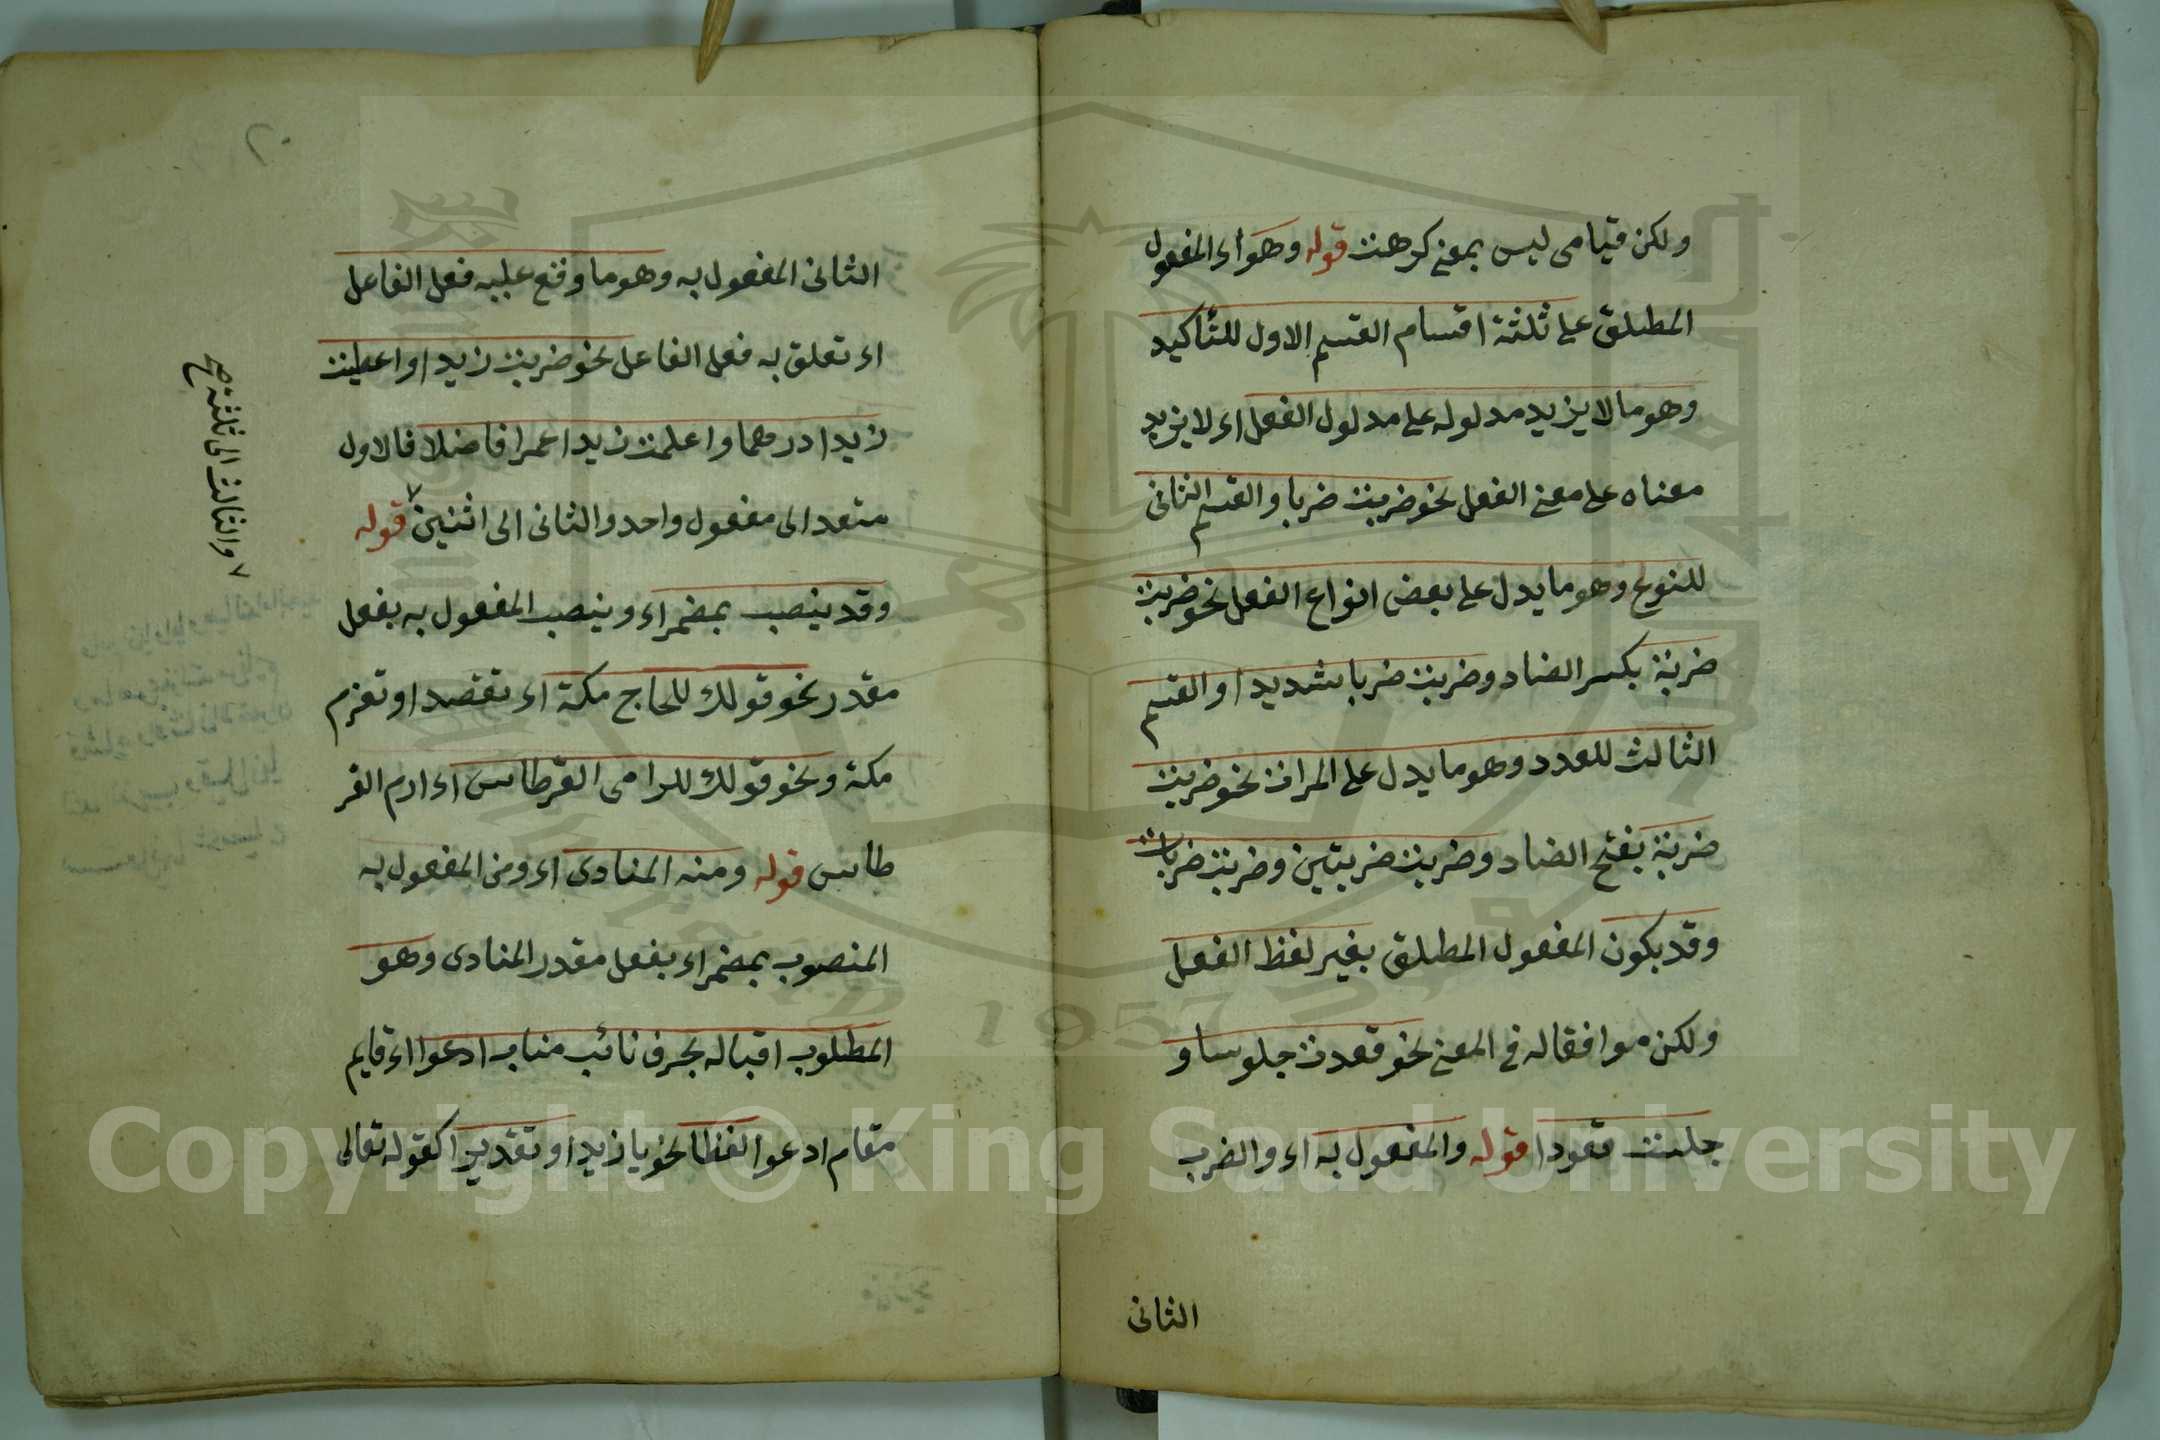 ولكن قيامى ليس بمعنى كرهت قوله وهو اء المفعول
المطلق على ثلثة اقسام القسم الاول للتأكيد
وهو مالا يزيد مدلوله على مدلول الفعل اء لا يزيد
معناه على معنى الفعل نحو ضربت ضربا والقسم الثانى
للنوع وهو ما يدل على بعض انواع الفعل نحو ضربت
ضربة بكسر الضاد وضربت ضربا شديدا والقسم
الثالث للعدد وهو ما يدل على المرات نحو ضربت
ضربة بفتح الضاد وضربت ضربتين وضربت ضربات
وقد يكون المفعول المطلق بغير لفظ الفعل
ولكن موافقا له فى المعنى نحو قعدت جلوسا و
جلست قعودا قوله والمفعول به اء والضرب
الثانى
الثانى المفعول به وهو ما وقع عليه فعل الفاعل
اء تعلق به فعل الفاعل نحو ضربت زيدا واعطيت
زيدا درهما واعلمت زيدا عمرا فاضلا فالاول
متعد الى مفعول واحد والثانى الى اثنين قوله
والثالث الى ثلثة صح
وقد ينصب بمضمر اء وينصب المفعول به بفعل
مقدر نحو قولك للحاج مكة اء تقصد او تعزم
مكة ونحو قولك للرامى القرطاس اء ارم القر
طاس قوله ومنه المنادى اء ومن المفعول به
المنصوب بمضمر اء بفعل مقدر المنادى وهو
المطلوب اقباله بحرف نائب مناب ادعوا اء قايم
مقام ادعوا لفظا نحو يا زيد او تقديرا كقوله تعالى
Copyright © King Saud University
1957